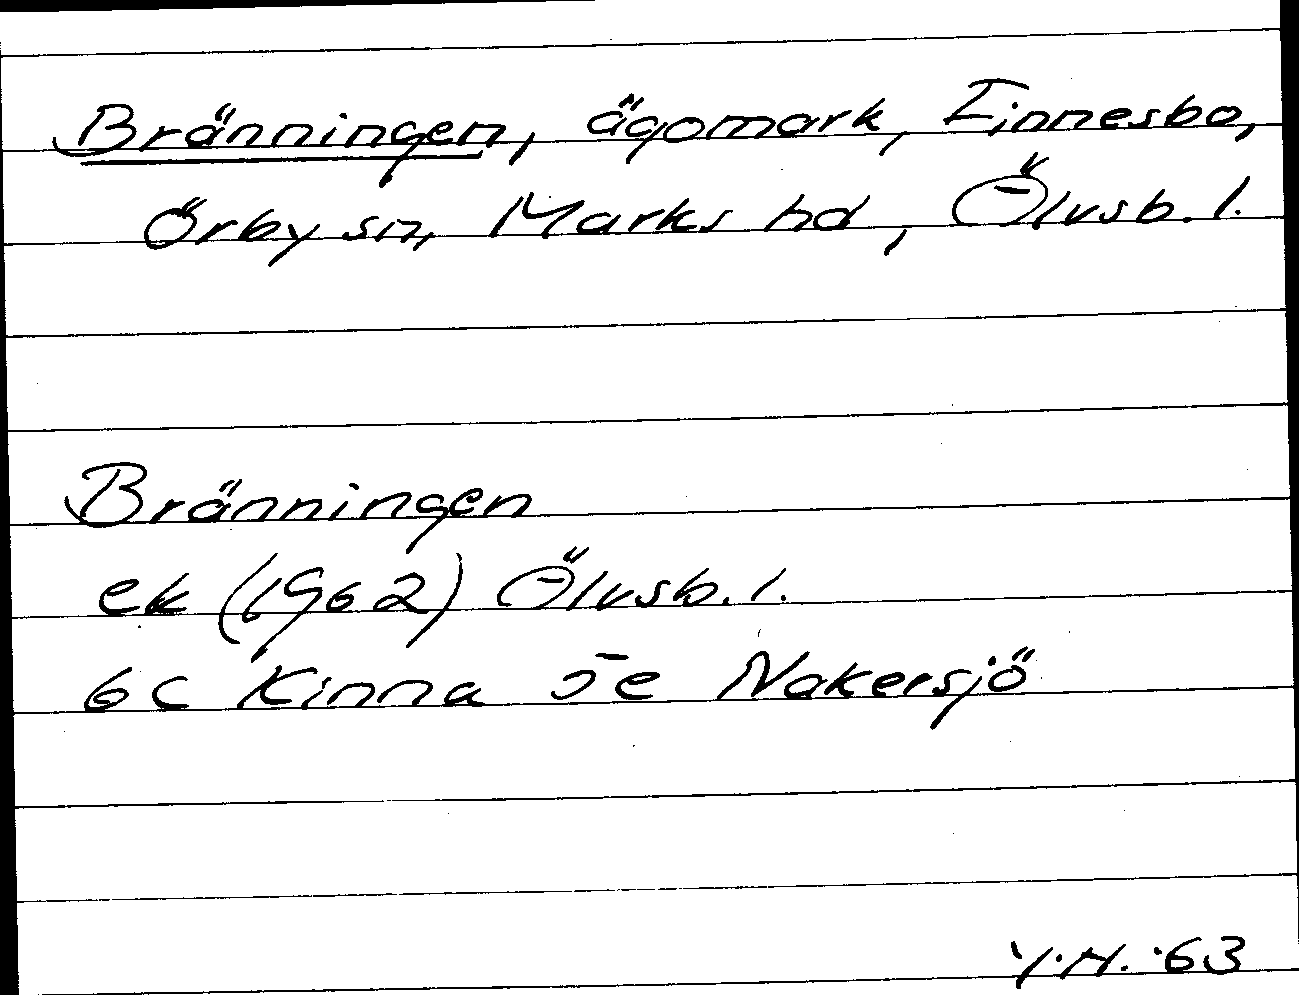 Bränningen, ägomark, Finnesbo,
Örby sn, Marks hd, Älvsb. l.
Bränningen
ek (1962) Älvsb. l.
6 C Kinna 5 e Nakersjö
Y.H. 63